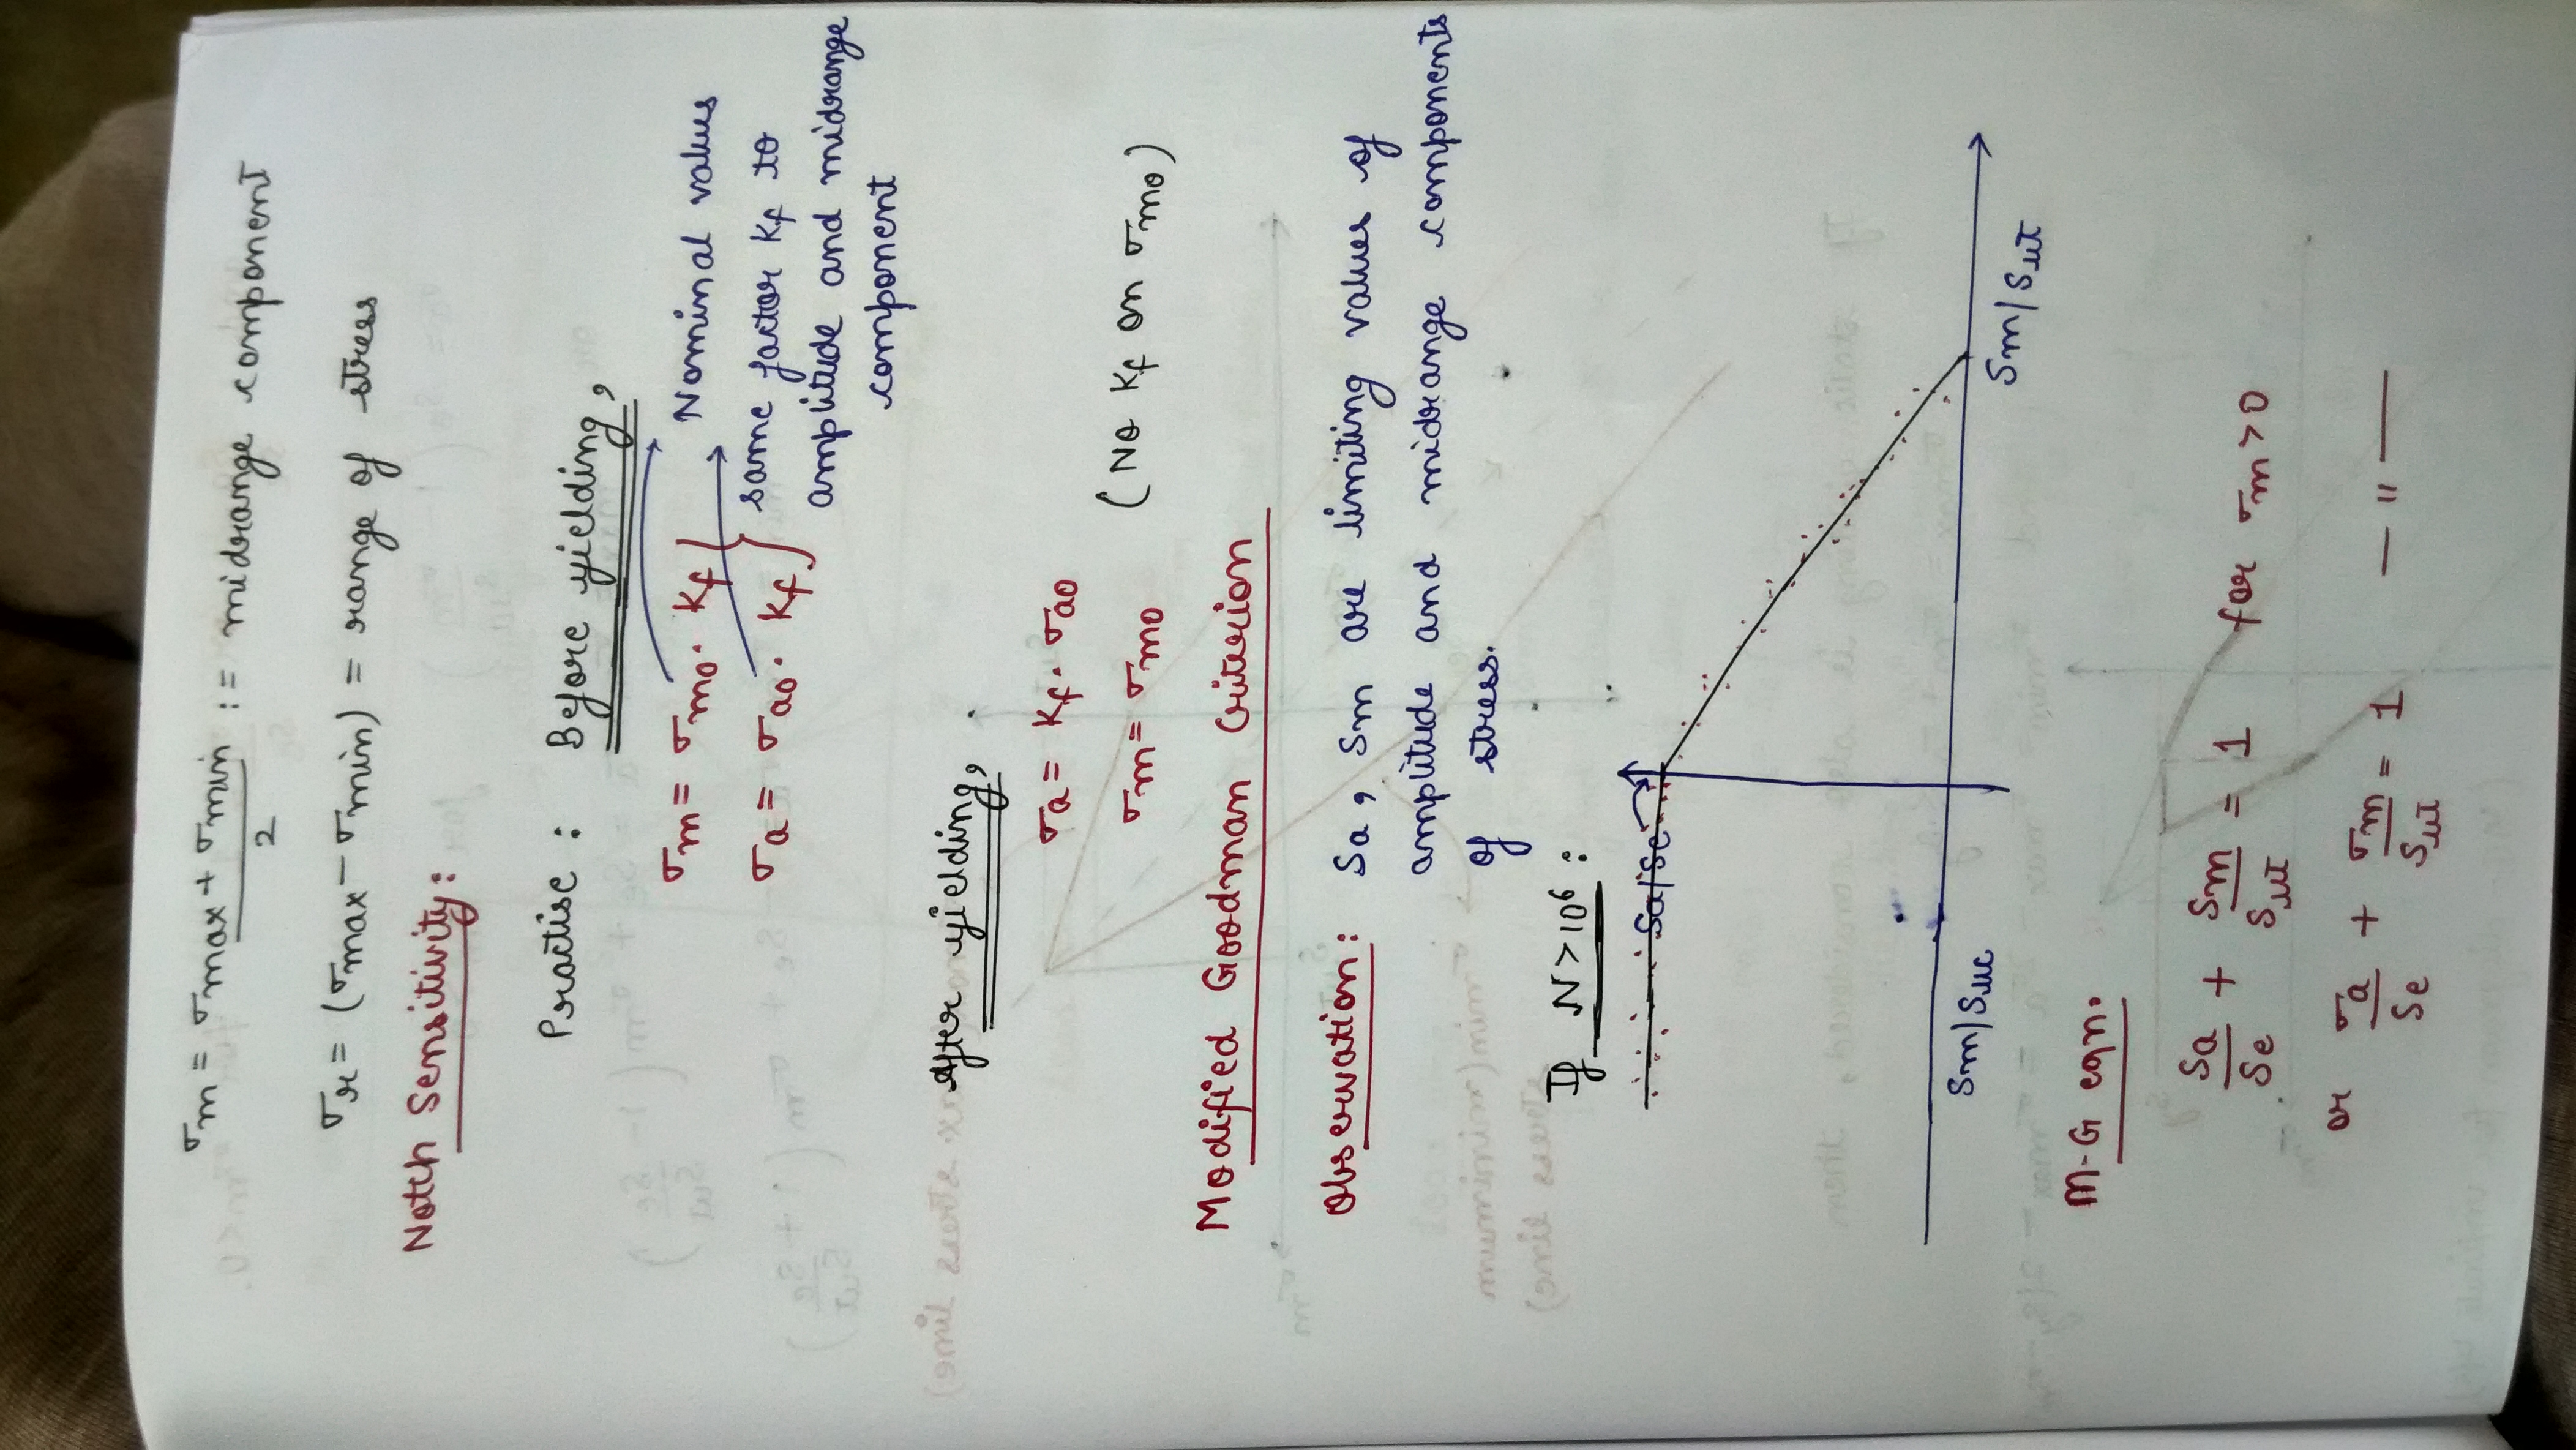 σm = (σmax + σmin)/2 := midrange component
σr = (σmax − σmin) = range of stress
Notch Sensitivity:
Practise : Before yielding,
σm = σmo · Kf
σa = σao · Kf
Nominal values
same factor Kf to
amplitude and midrange
component
After yielding,
σa = Kf · σao
σm = σmo (No Kf on σmo)
Modified Goodman Criterion
Observation: Sa, Sm are limiting values of
amplitude and midrange components
of stress.
If N>10⁶ :
Sa/Se
Sm/Suc
Sm/Sut
M-G eqn.
Sa/Se + Sm/Sut = 1 for σm>0
or σa/Se + σm/Sut = 1 — 〃 —